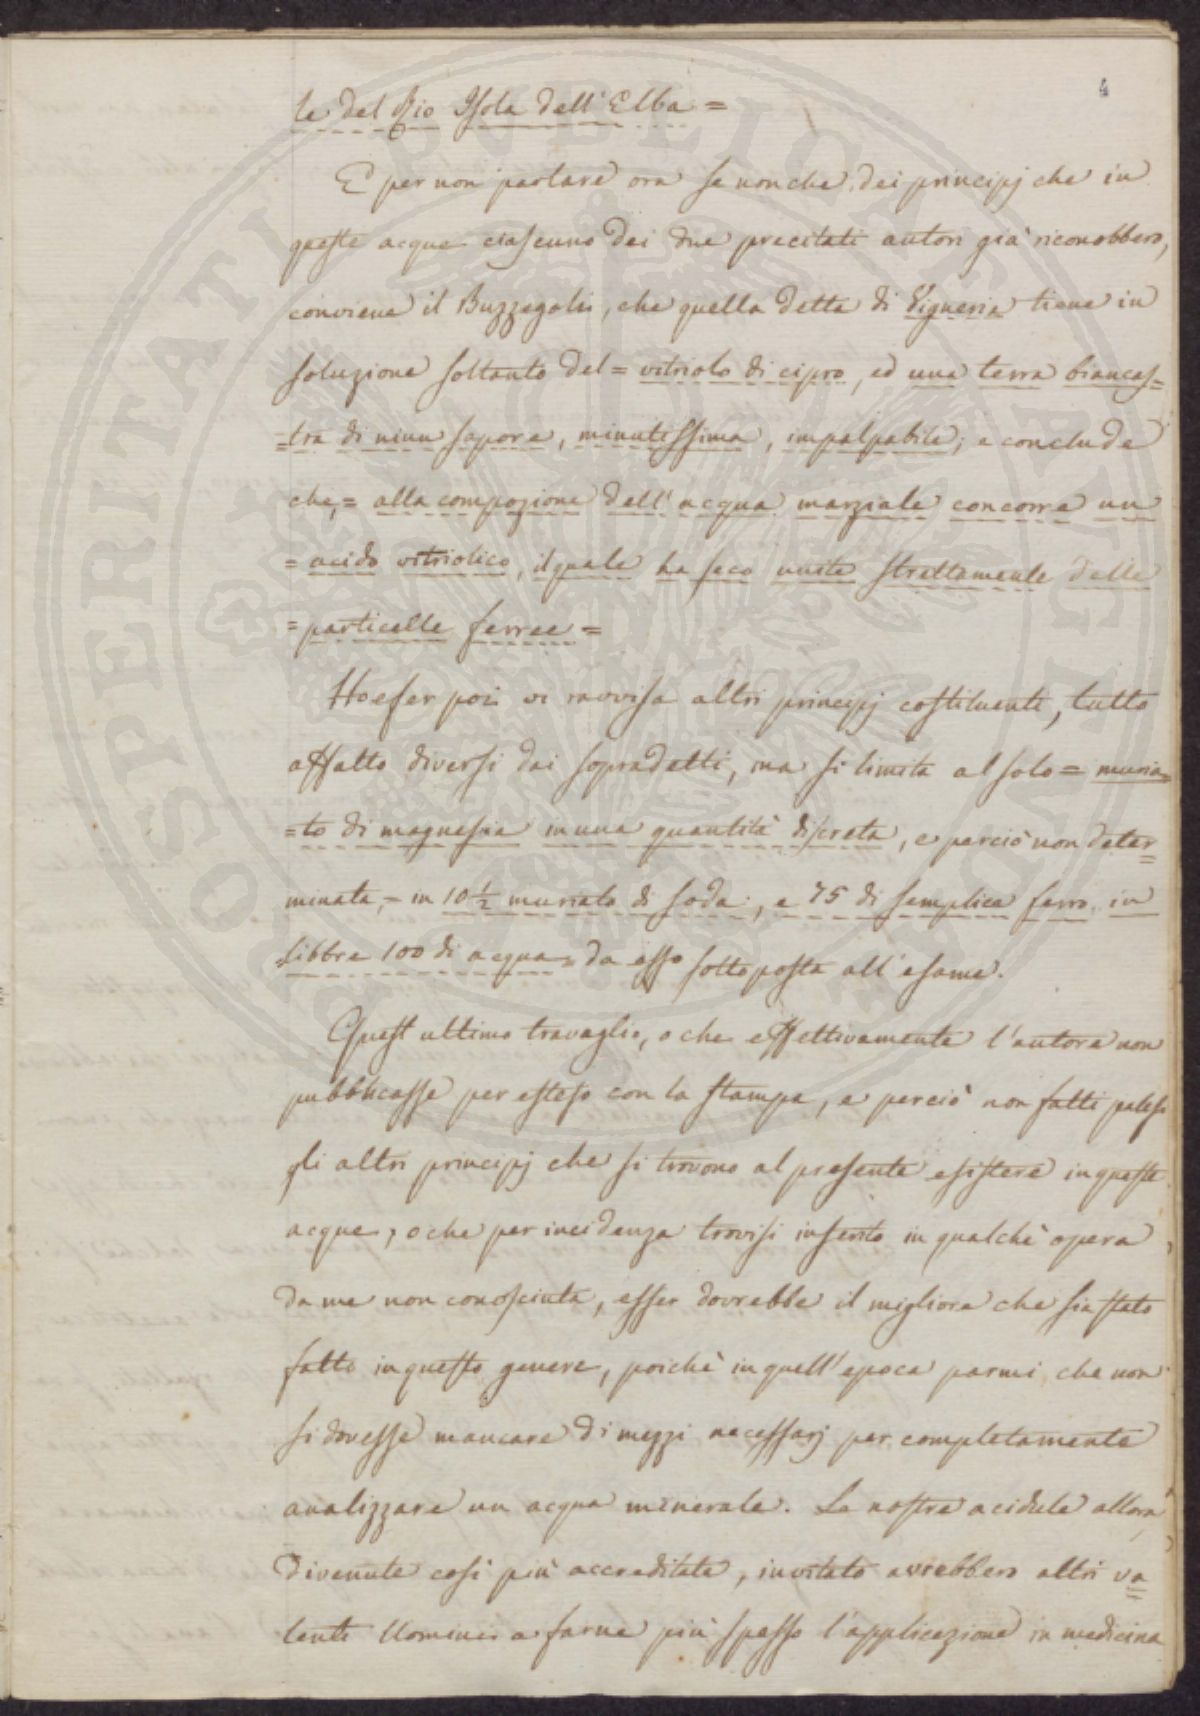 4
le del Rio Isola dell'Elba =
E per non parlare ora se non che dei principj che in
queste acque ciascuno dei due precitati autori già riconobbero,
conviene il Buzzegoli, che quella detta di Vigneria tiene in
soluzione soltanto del = vitriolo di cipro, ed una terra biancas=
=tra di niun sapore, minutissima, impalpabile; e conclude
che, = alla compozione dell'acqua marziale concorre un
= acido vitriolico, il quale ha seco unite strettamente delle
= particelle ferree =
Hoefer poi vi ravvisa altri principj costituenti, tutto
affatto diversi dai sopradetti, ma si limita al solo = muria=
=to di magnesia in una quantità discreta, e perciò non deter=
minata, = in 10 1/2 muriato di soda, e 75 di semplice ferro in
libbre 100 di acqua = da esso sottoposta all'esame.
Quest ultimo travaglio, o che effettivamente l'autore non
pubblicasse per esteso con la stampa, e perciò non fatti palesi
gli altri principj che si trovono al presente esistere in queste
acque, o che per incidenza trovisi inserito in qualchè opera
da me non conosciuta, esser dovrebbe il migliore che sia stato
fatto in questo genere, poichè in quell'epoca parmi che non
si dovesse mancare di mezzi necessarj per completamente
analizzare un acqua minerale. Le nostre acidule allora
divenute così più accreditate, invitato avrebbero altri va=
lenti Uomini a farne più spesso l'applicazione in medicina
PROSPERITATI PUBLICAE AUGENDAE